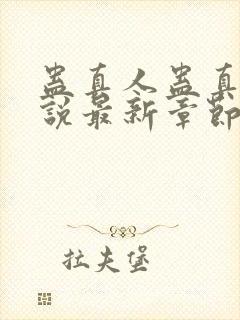 蛊真人蛊真
說最新章節
拉夫堡